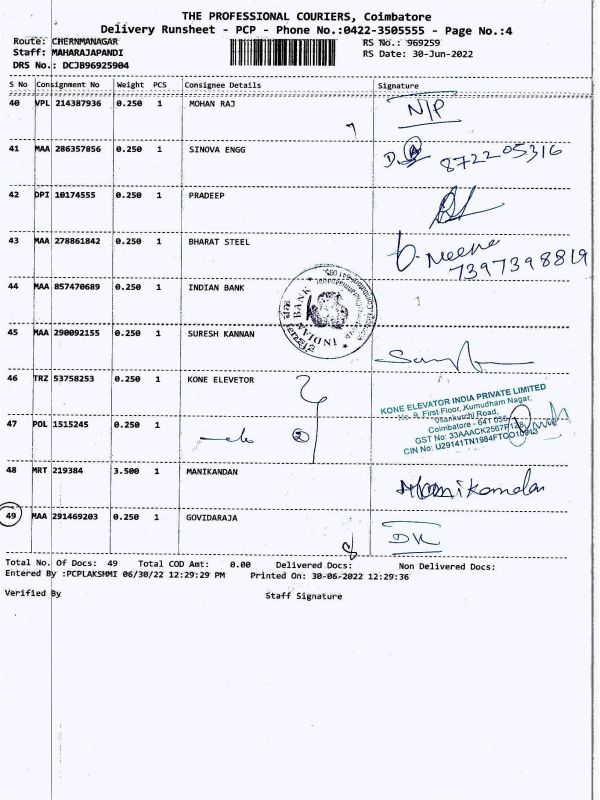 THE PROFESSIONAL COURIERS, Coimbatore
Delivery Runsheet - PCP - Phone No.:0422-3505555 - Page No.:4
Route: CHERNMANAGAR RS No.: 969259
Staff: MAHARAJAPANDI RS Date: 30-Jun-2022
DRS No.: DCJB96925904
S No Consignment No Weight PCS Consignee Details Signature
40 VPL 214387936 0.250 1 MOHAN RAJ N/P
41 MAA 286357856 0.250 1 SINOVA ENGG 8722205316
42 DPI 10174555 0.250 1 PRADEEP
43 MAA 278861842 0.250 1 BHARAT STEEL D. Meena
7397398819
44 MAA 857470689 0.250 1 INDIAN BANK
INDIAN BANK
45 MAA 290092155 0.250 1 SURESH KANNAN
46 TRZ 53758253 0.250 1 KONE ELEVETOR
KONE ELEVATOR INDIA PRIVATE LIMITED
No. 9, First Floor, Kumudham Nagar,
Vilankurchi Road,
Coimbatore - 641 035
GST No: 33AAACK2567P1Z8
CIN No: U29141TN1984FTC010913
47 POL 1515245 0.250 1
2
48 MRT 219384 3.500 1 MANIKANDAN Manikandan
49 MAA 291469203 0.250 1 GOVIDARAJA DK
Total No. Of Docs: 49 Total COD Amt: 0.00 Delivered Docs: Non Delivered Docs:
Entered By :PCPLAKSHMI 06/30/22 12:29:29 PM Printed On: 30-06-2022 12:29:36
Verified By Staff Signature